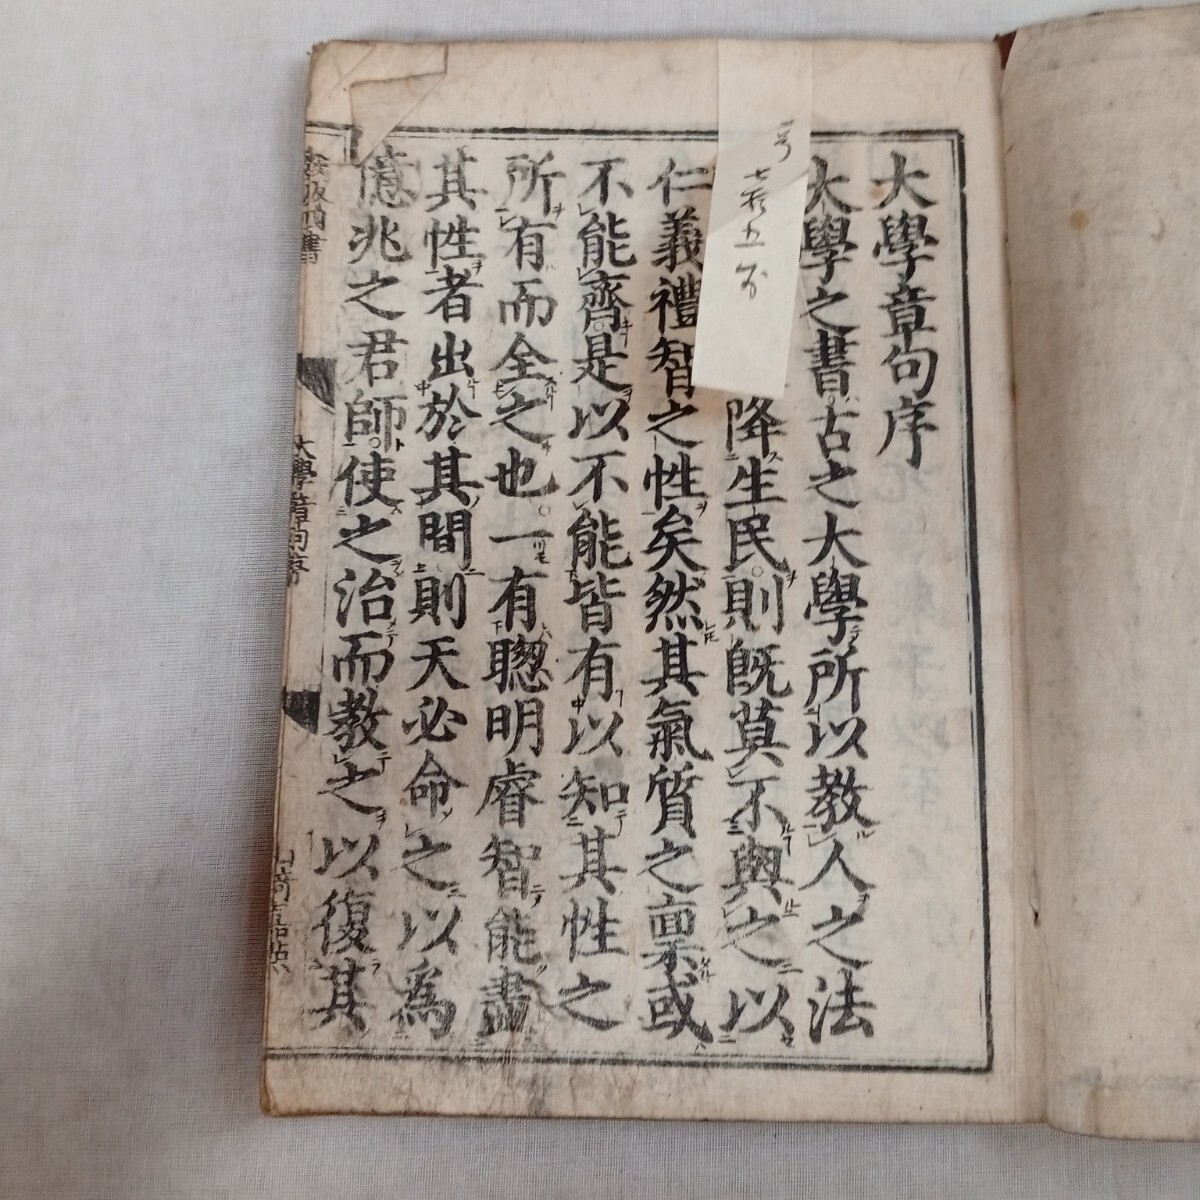 大學章句序
大學之書古之大學所以教人之法
降生民則既莫不與之以
仁義禮智之性矣然其氣質之稟或
不能齊是以不能皆有以知其性之
所有而全之也一有聰明睿智能盡
其性者出於其間則天必命之以爲
億兆之君師使之治而教之以復其
大學章句序
山崎嘉點